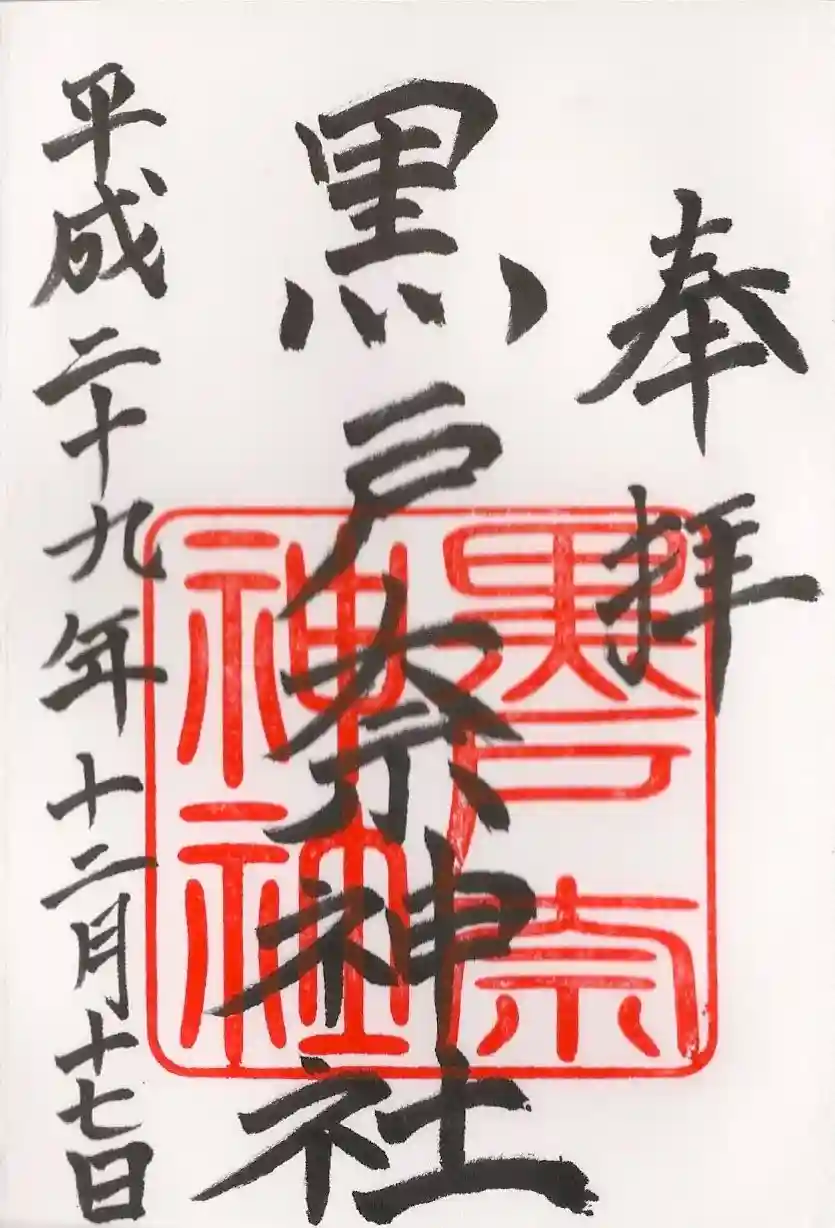 奉拝
黒戸奈神社
黒戸奈
神社
平成二十九年十二月十七日